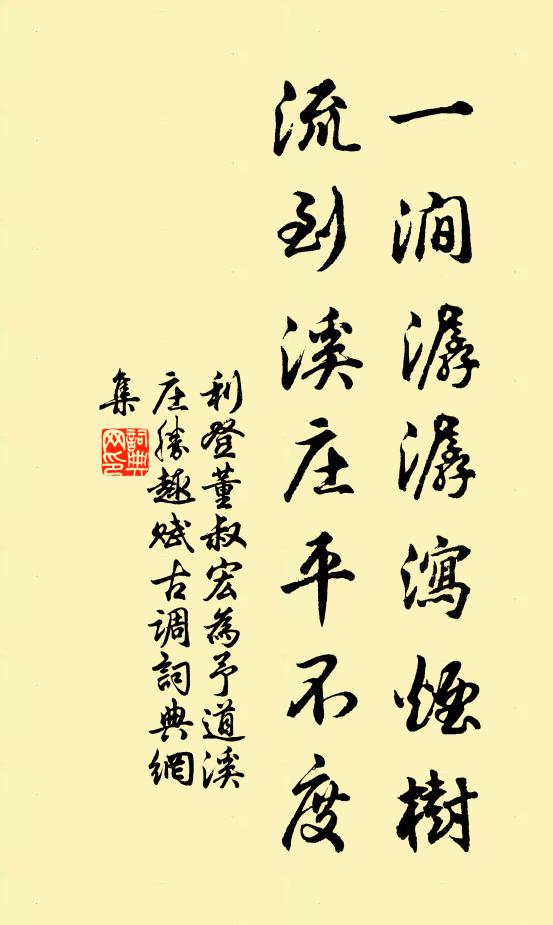 一澗潺潺瀉煙樹
流到溪庄平不度
利登董叔宏為予道溪
庄勝趣賦古調詞典網
集
詞典
网印